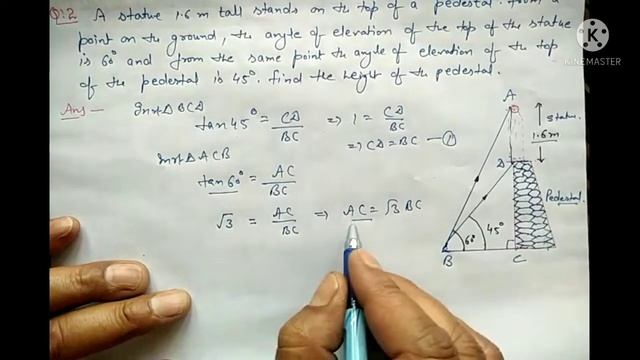 Q:2 A statue 1.6 m tall stands on the top of a pedestal. From a
point on the ground, the angle of elevation of the top of the statue
is 60° and from the same point the angle of elevation of the top
of the pedestal is 45°. find the height of the pedestal.
Ans:-
In rt Δ BCD
tan 45° = CD/BC ⇒ 1 = CD/BC
⇒ CD = BC — ①
In rt Δ ACB
tan 60° = AC/BC
√3 = AC/BC ⇒ AC = √3 BC
A
statue
1.6m
D
Pedestal
60°
45°
B
C
K
KINEMASTER